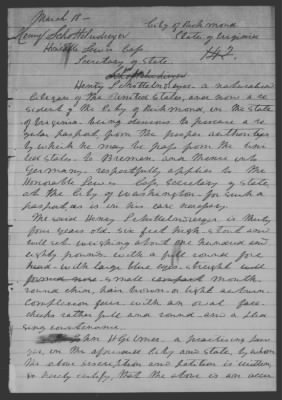 March 18 —
City of Richmond
State of Virginia
Henry Schottelndreyer
142
Honable Lewis Cass
Secretary of State
Henry Schottelndreyer a naturalized
Citizen of the United States, and now a re
sident of the City of Richmond, in the State
of Virginia being desirous to procure a re
gular passport from the proper authorities
by which he may be pass from the Uni
ted States to Bremen and thence into
Germany respectfully applies to the
Honorable Lewis Cass Secretary of State
at the City of Washington for such a
passport as is in his case necessary.
The said Henry Schottelndreyer is thirty
four years old, six feet high stout and
well set weighing about one hundred and
eighty pounds with a full round fore
head with large blue eyes straight well
formed nose small compact mouth
round chin, hair brown or light auburn
Complexion fair with an oval face
cheeks rather full and round and a plea
sing countenance.
John H Gilmer a practising law
yer, in the aforesaid City and State, by whom
the above description and petition is written,
do hereby certify, that the above is an accu